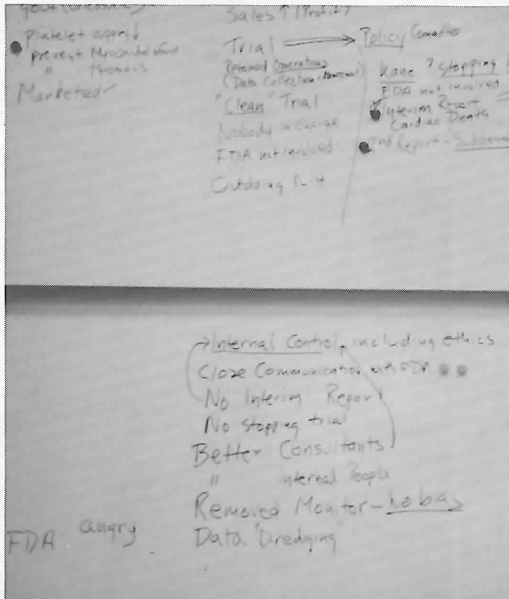 Platelet aggreg↓
prevent Myocardial infarct
" thrombosis
Marketed
Sales ↑ (Profit)
Trial
(Data Collection
"Clean" Trial
Nobody in charge
FDA not involved
Policy Committee
Kane ? stopping
FDA not involved
Interim Report
Cardiac Death
2nd Report -
Internal Control, including ethics
Close Communication with FDA
No Interim Report
No stopping trial
Better Consultants
" internal People
Removed Monitor - No bias
Data "Dredging"
FDA angry